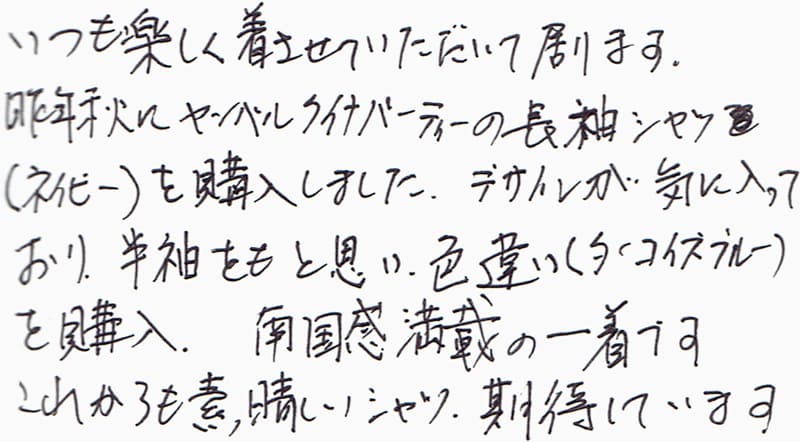 いつも楽しく着させていただいて居ります.
昨年秋にヤンバルクイナパーティーの長袖シャツ
(ネイビー)を購入しました. デザインが気に入って
おり. 半袖をもと思い. 色違い(ターコイズブルー)
を購入. 南国感満載の一着です
これからも素晴しいシャツ. 期待しています